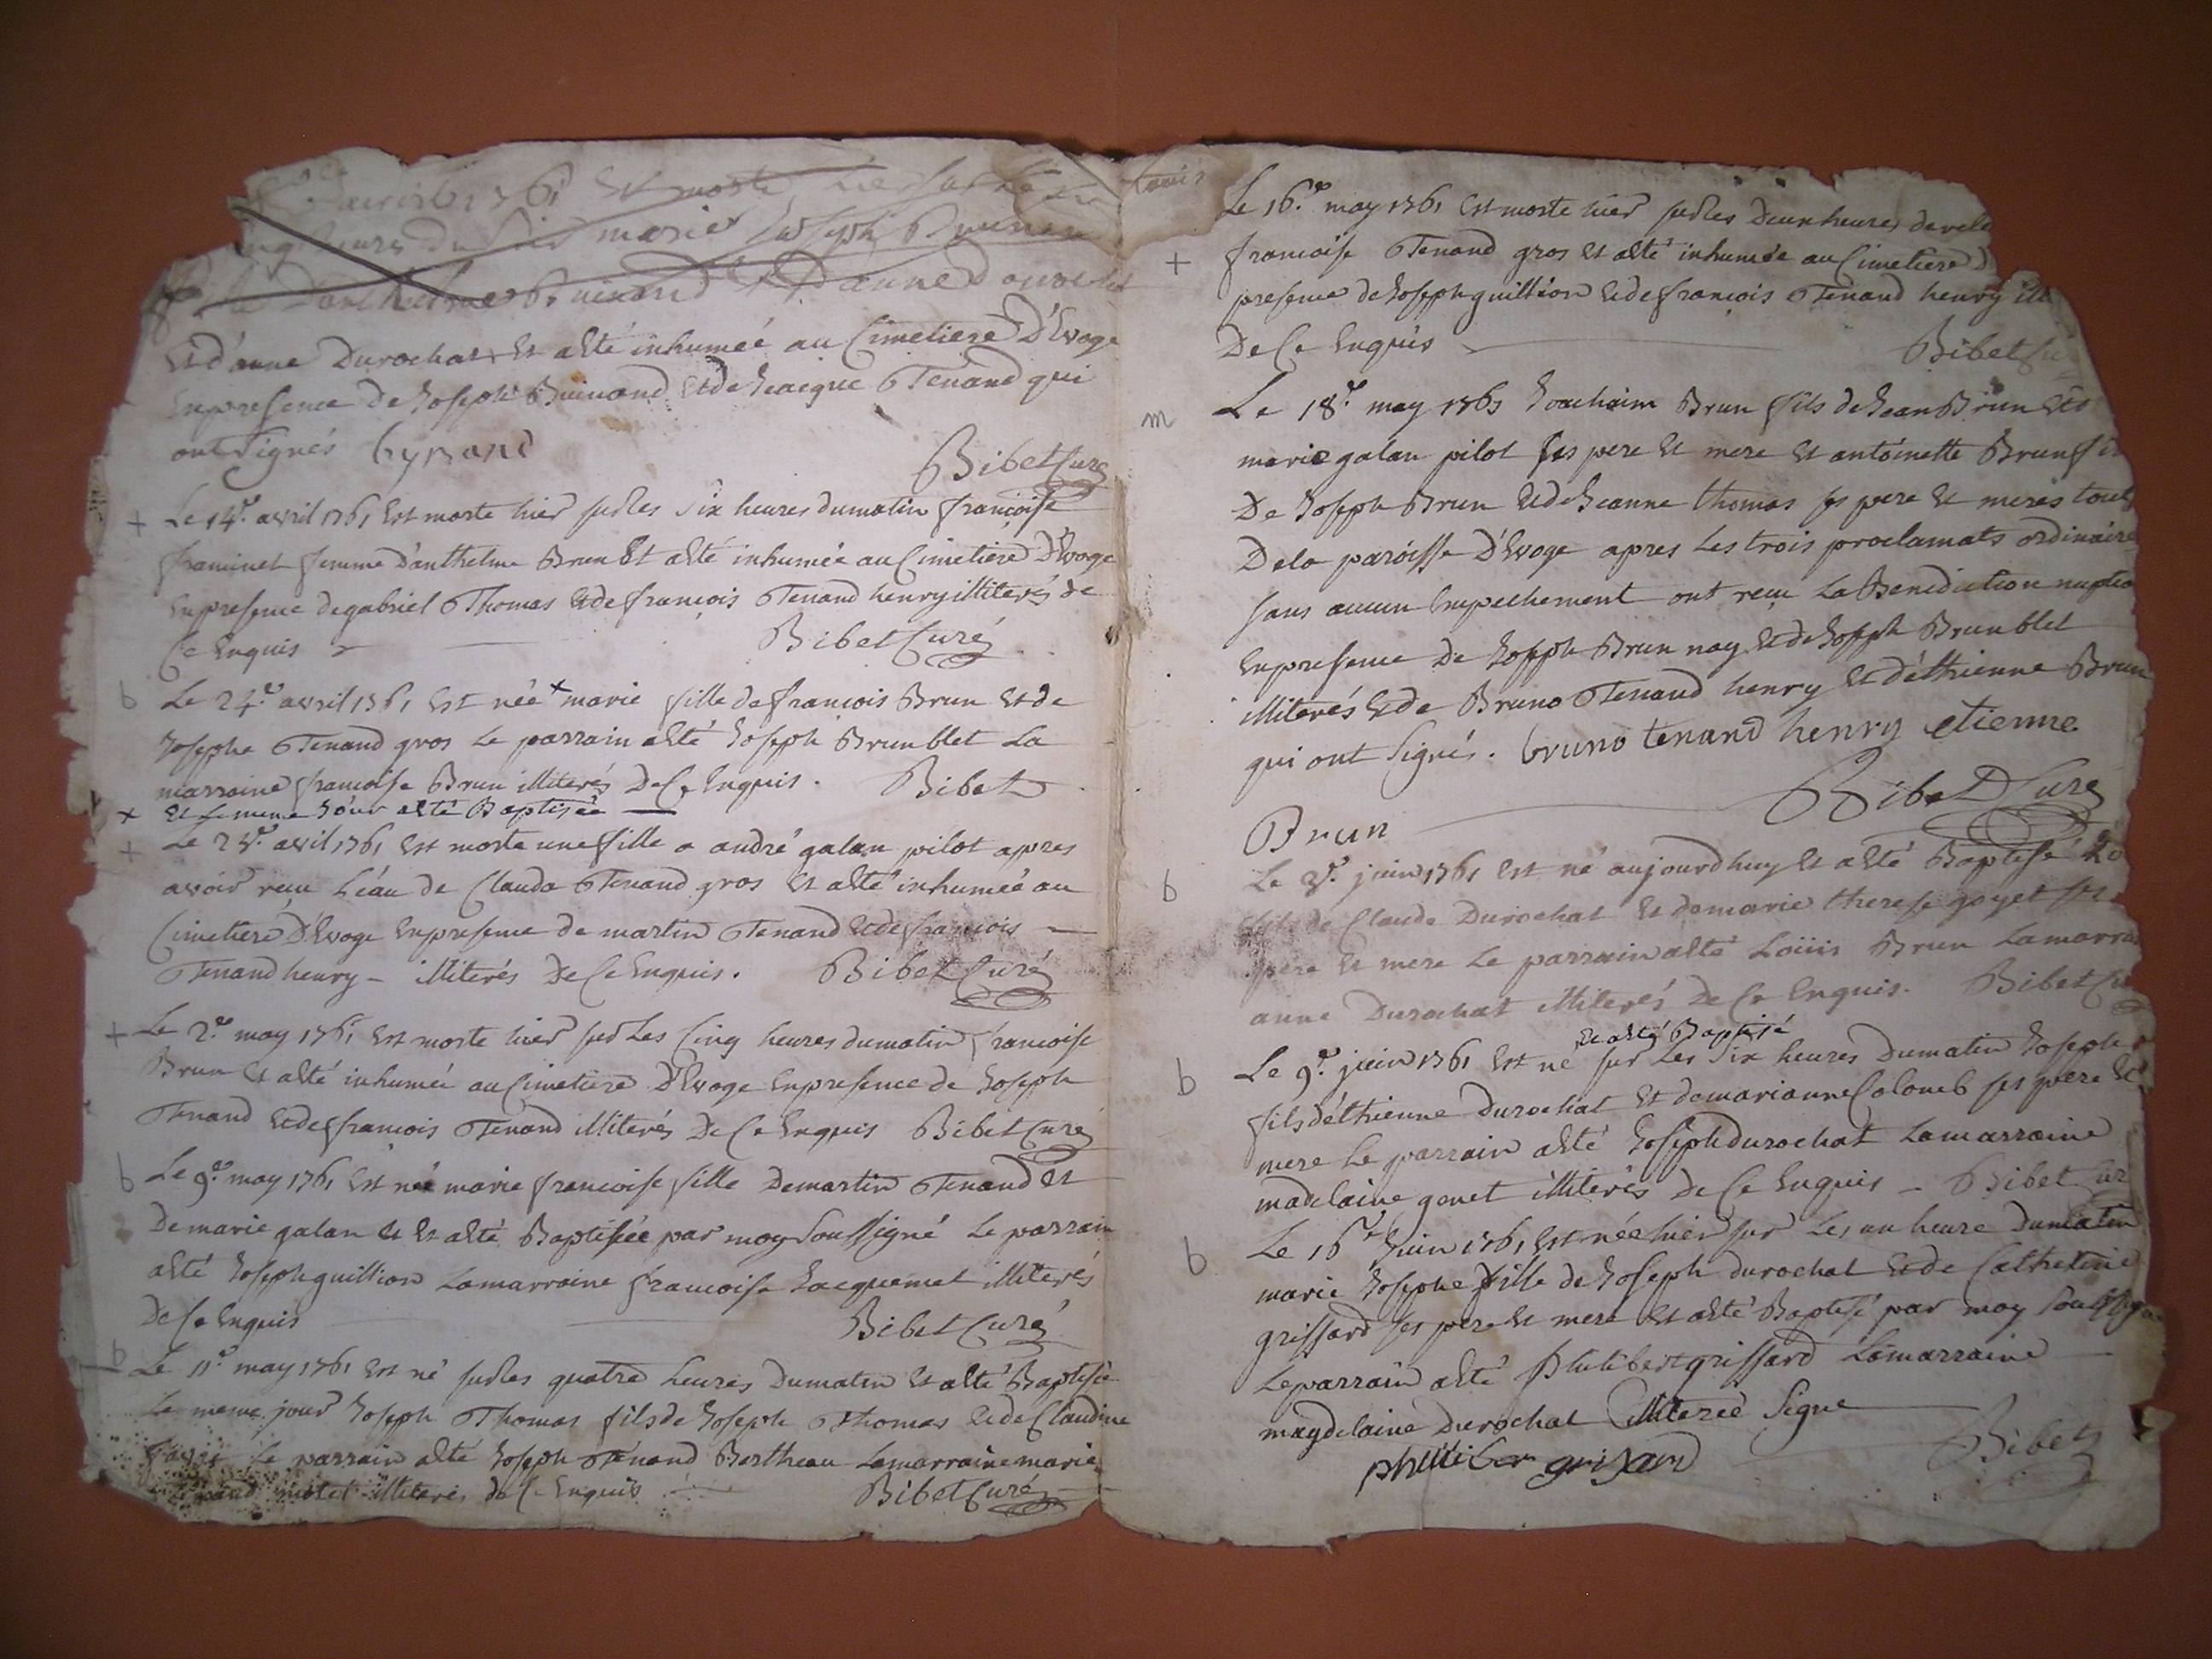 avril 1761 Est morte hier sur les
heures du soir marie Joseph Buinan
Buinand
Et d'anne Durochat Et a eté inhumeé au Cimetiere D'Evoge
En presence De Joseph Buinand Et de Jacque Tenand qui
ont signés bynand
Bibet Curé
+ Le 14e avril 1761 Est morte hier sur les six heures du matin françoise
framinet femme d'anthelme Brun Et a eté inhumée au Cimetiere D'Evoge
En presence de gabriel Thomas Et de françois Tenand henry illiterés de
Ce Enquis Bibet Curé
b Le 24e avril 1761 Est née + marie fille de françois Brun Et de
Josephe Tenand gros Le parrain a eté Joseph Brun blet La
marraine françoise Brun illiterés De Ce Enquis. Bibet
+ Et le meme Jour a eté Baptisée
+ Le 25e avril 1761 Est morte une fille a andré galan pilot apres
avoir reçu L'éau de Clauda Tenand gros Et a eté inhumeé au
Cimetiere D'Evoge En presence de martin Tenand Et de françois
Tenand henry - illiterés De Ce Enquis. Bibet Curé
+ Le 2e may 1761 Est morte hier sur Les Cinq heures du matin françoise
Brun Et a eté inhumeé au Cimetiere D'Evoge En presence de Joseph
Tenand Et de françois Tenand illiterés De Ce Enquis Bibet Curé
b Le 9e may 1761 Est née marie françoise fille De martin Tenand Et
De marie galan Et a eté Baptiséé par moy Soussigné Le parrain
a eté Joseph guillion La marraine françoise Jacquemet illiterés
De Ce Enquis Bibet Curé
b Le 11e may 1761 Est né sur les quatre heures Du matin Et a eté Baptisée
Le meme jour Joseph Thomas fils de Joseph Thomas Et de Claudine
Le parrain a eté Joseph Tenand Bertheau La marraine marie
illiterés de Ce Enquis Bibet Curé
Le 16e may 1761 Est morte hier sur les Deux heures
+ francoise Tenand gros Et a eté inhumée au Cimetiere
presence de Joseph guillion Et de françois Tenand henry
De Ce Enquis Bibet
m Le 18e may 1761 Joachaim Brun fils de Jean Brun
marie galan pilot ses pere Et mere Et antoinette Brun
De Joseph Brun Et de Jeanne Thomas ses pere Et meres tous
De la paroisse D'Evoge apres Les trois proclamats ordinaire
sans aucun Empechement ont reçu La Benediction
En presence De Joseph Brun nay Et de Joseph Brun blet
illiterés Et de Bruno Tenand henry Et d'éthienne Brun
qui ont signés. bruno tenand henry etienne
Brun Bibet Curé
b Le juin 1761 Est né aujourd huy Et a eté Baptisé
fils de Claude Durochat Et de marie therese goyet
pere Et mere Le parrain a eté Loüis Brun
anne Durochat illiterés De Ce Enquis. Bibet
Et a eté Baptisé
b Le 9e juin 1761 Est né sur Les Six heures Du matin Joseph
fils d'éthienne Durochat Et de marianne Colomb ses pere Et
mere Le parrain a eté Joseph durochat La marraine
madelaine gonet illiterés De Ce Enquis - Bibet
b Le 16e Juin 1761 Est née hier sur Les un heure Du matin
marie Josephe fille de Joseph durochat Et de Catherine
grissard ses pere Et mere Et a eté Baptisé par moy
Le parrain a eté Philibert grissard La marraine
magdelaine Durochat illiterée Signe
philiber grisard Bibet